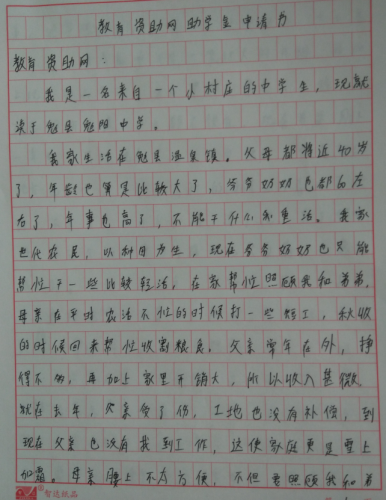 教育资助网助学金申请书
教育资助网：
我是一名来自一个小村庄的中学生，现就
读于勉县勉阳中学。
我家生活在勉县温泉镇。父母都将近40岁
了，年龄也算是比较大了，爷爷奶奶也都70左
右了，年事也高了，不能干什么重活。我家
世代农民，以种田为生，现在爷爷奶奶也只能
帮忙干一些比较轻活，在家帮忙照顾我和弟弟，
母亲在平时农活不忙的时候打一些短工，秋收
的时候回来帮忙收割粮食。父亲常年在外，挣
得不多，再加上家里开销大，所以收入甚微，
就在去年，父亲受了伤，工地也没有补偿，到
现在父亲也没有找到工作，这使家庭更是雪上
加霜。母亲腰上不太方便，不但要照顾我和弟
智造纸品